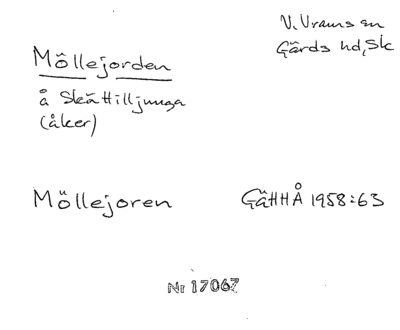 V. Vrams sn
Gärds hd, Sk
Möllejorden
å Skättilljunga
(åker)
Möllejoren GäHHÅ 1958:63
Nr 17067